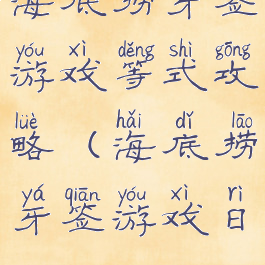 海底捞牙签
yóu xì děng shì gōng
游戏等式攻
lüè hǎi dǐ lāo
略（海底捞
yá qiān yóu xì rì
牙签游戏日